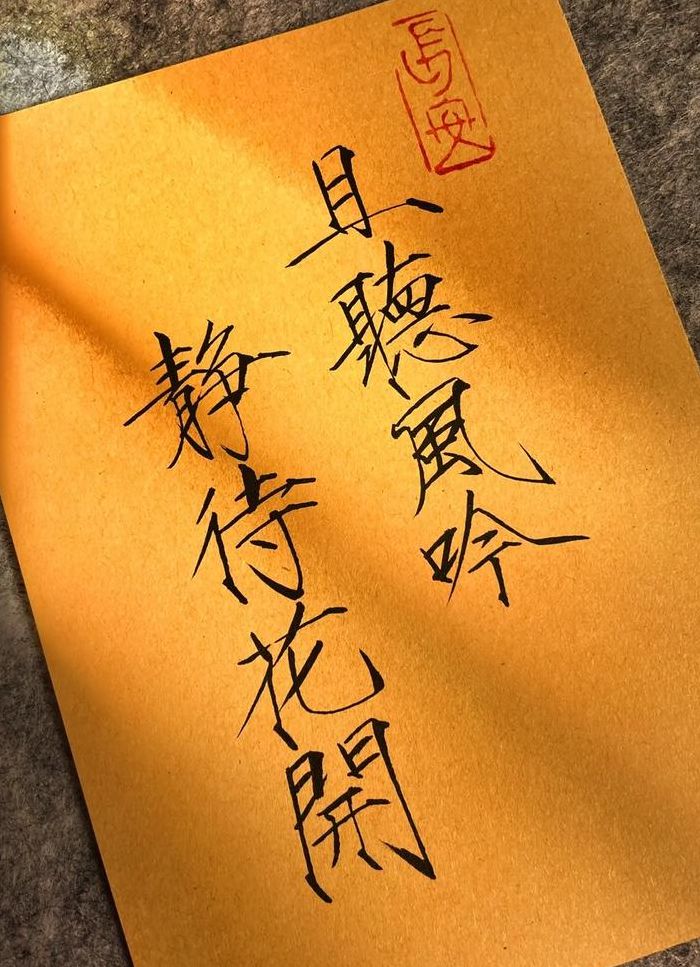 長安
且聽風吟
静待花開